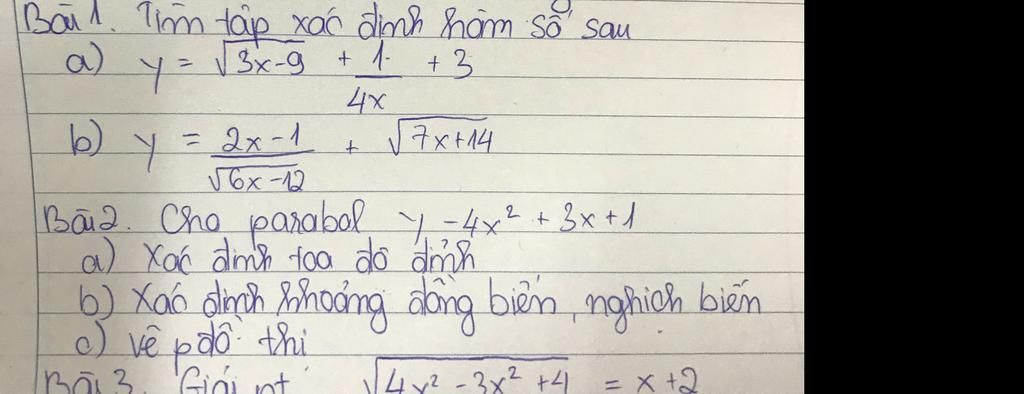 Bài 1. Tìm tập xác định hàm số sau
a) y = √(3x-9) + 1/(4x) + 3
b) y = (2x-1)/√(6x-12) + √(7x+14)
Bài 2. Cho parabol y - 4x² + 3x + 1
a) Xác định toa đô đỉnh
b) Xác định khoảng đồng biến, nghịch biến
c) vẽ pđồ thi
Bài 3. Giải pt √(4x² - 3x² + 4) = x + 2